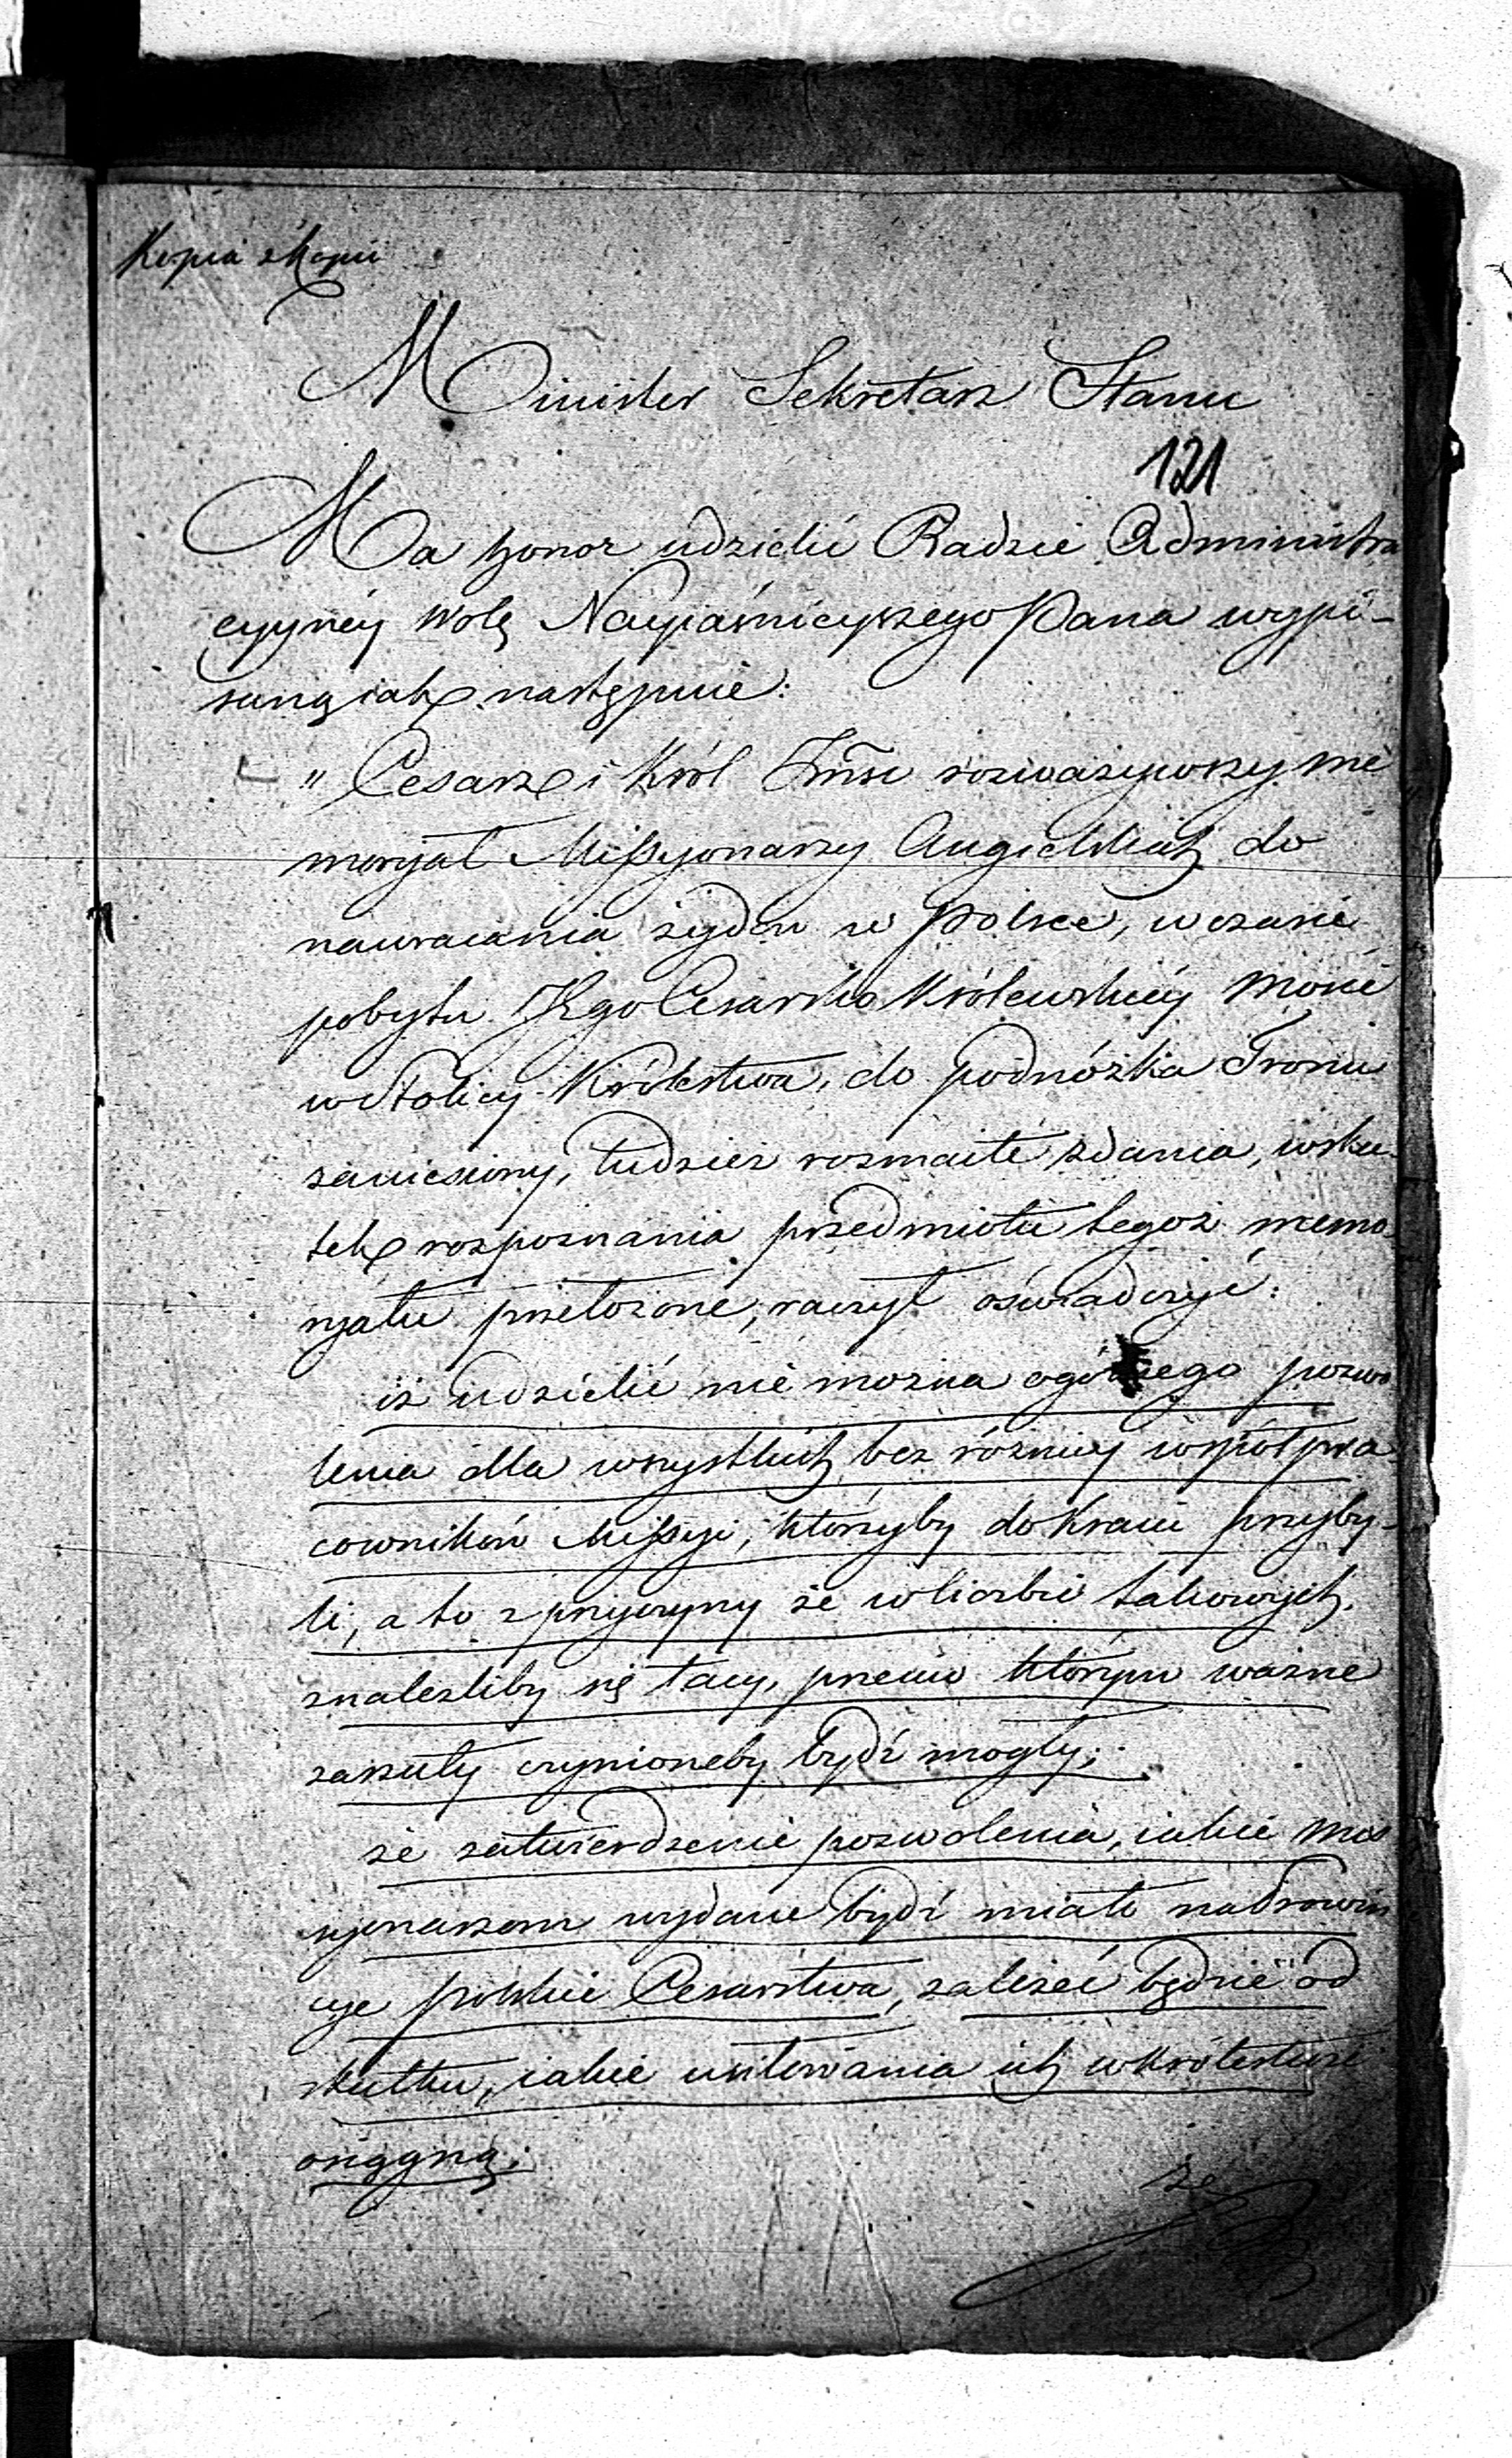 Kopia z Kopii
Minister Sekretarz Stanu
121
Ma honor udzielić Radzie Administra
cyyney wolę Nayiaśnieyszego Pana wypi-
saną iak następuie:
„ Cesarz i Król Jmść rozważywszy me
moryał Missyonarzy Angielskich do
nawracania żydów w Polsce, w czasie
pobytu Jego Cesarsko Królewskiéy Mości
w Stolicy Królestwa, do podnóżka Tronu
zaniesiony, tudzież rozmaite zdania, wsku-
tek rozpoznania przedmiotu tegoż memo-
ryału przełożone, raczył oświadczyć:
iż udzielić nie można ogólnego pozwo
lenia dla wszystkich bez różnicy współpra-
cowników Missyi, którzyby do kraiu przyby-
li, a to z przyczyny że w liczbie takowych,
znaleźliby się tacy, przeciw którym ważne
zarzuty czynioneby bydź mogły;
że zatwierdzenie pozwolenia, iakie mis
syonarzom wydane bydź miało na Prowin
cye polskie Cesarstwa, zależeć będzie od
skutku, iakie usiłowania ich w Królestwie
osiągną;
że